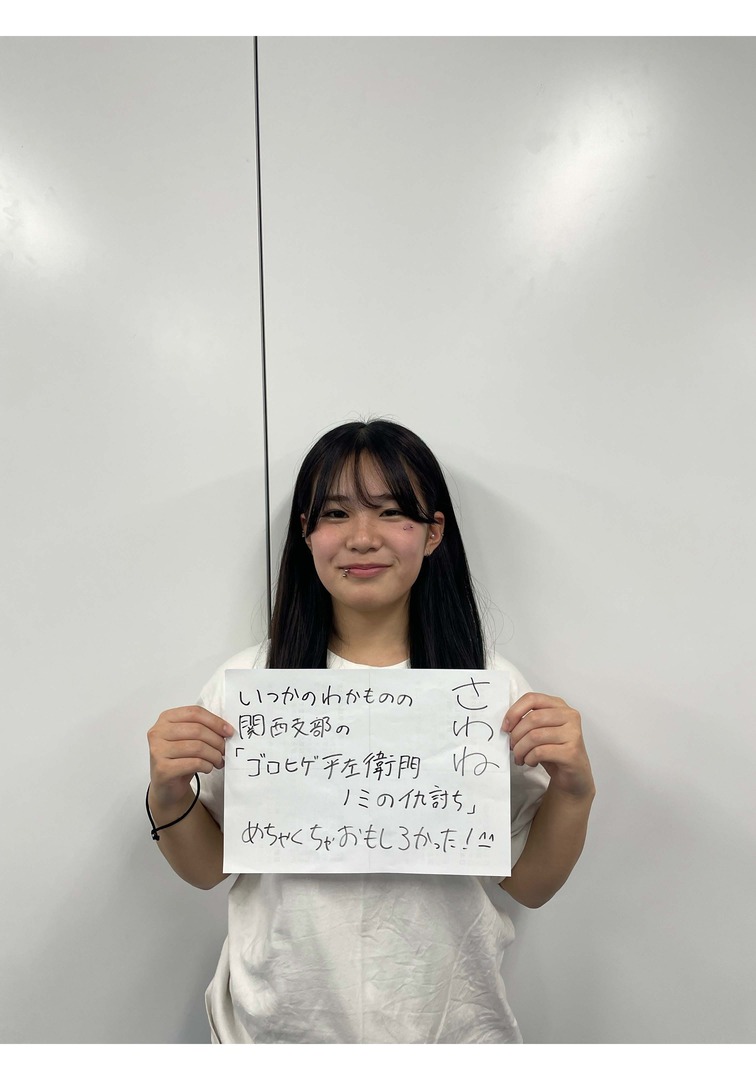 いつかのわかものの
関西支部の
「ゴロヒゲ平左衛門
ノミの仇討ち」
めちゃくちゃおもしろかった!^^
さわね